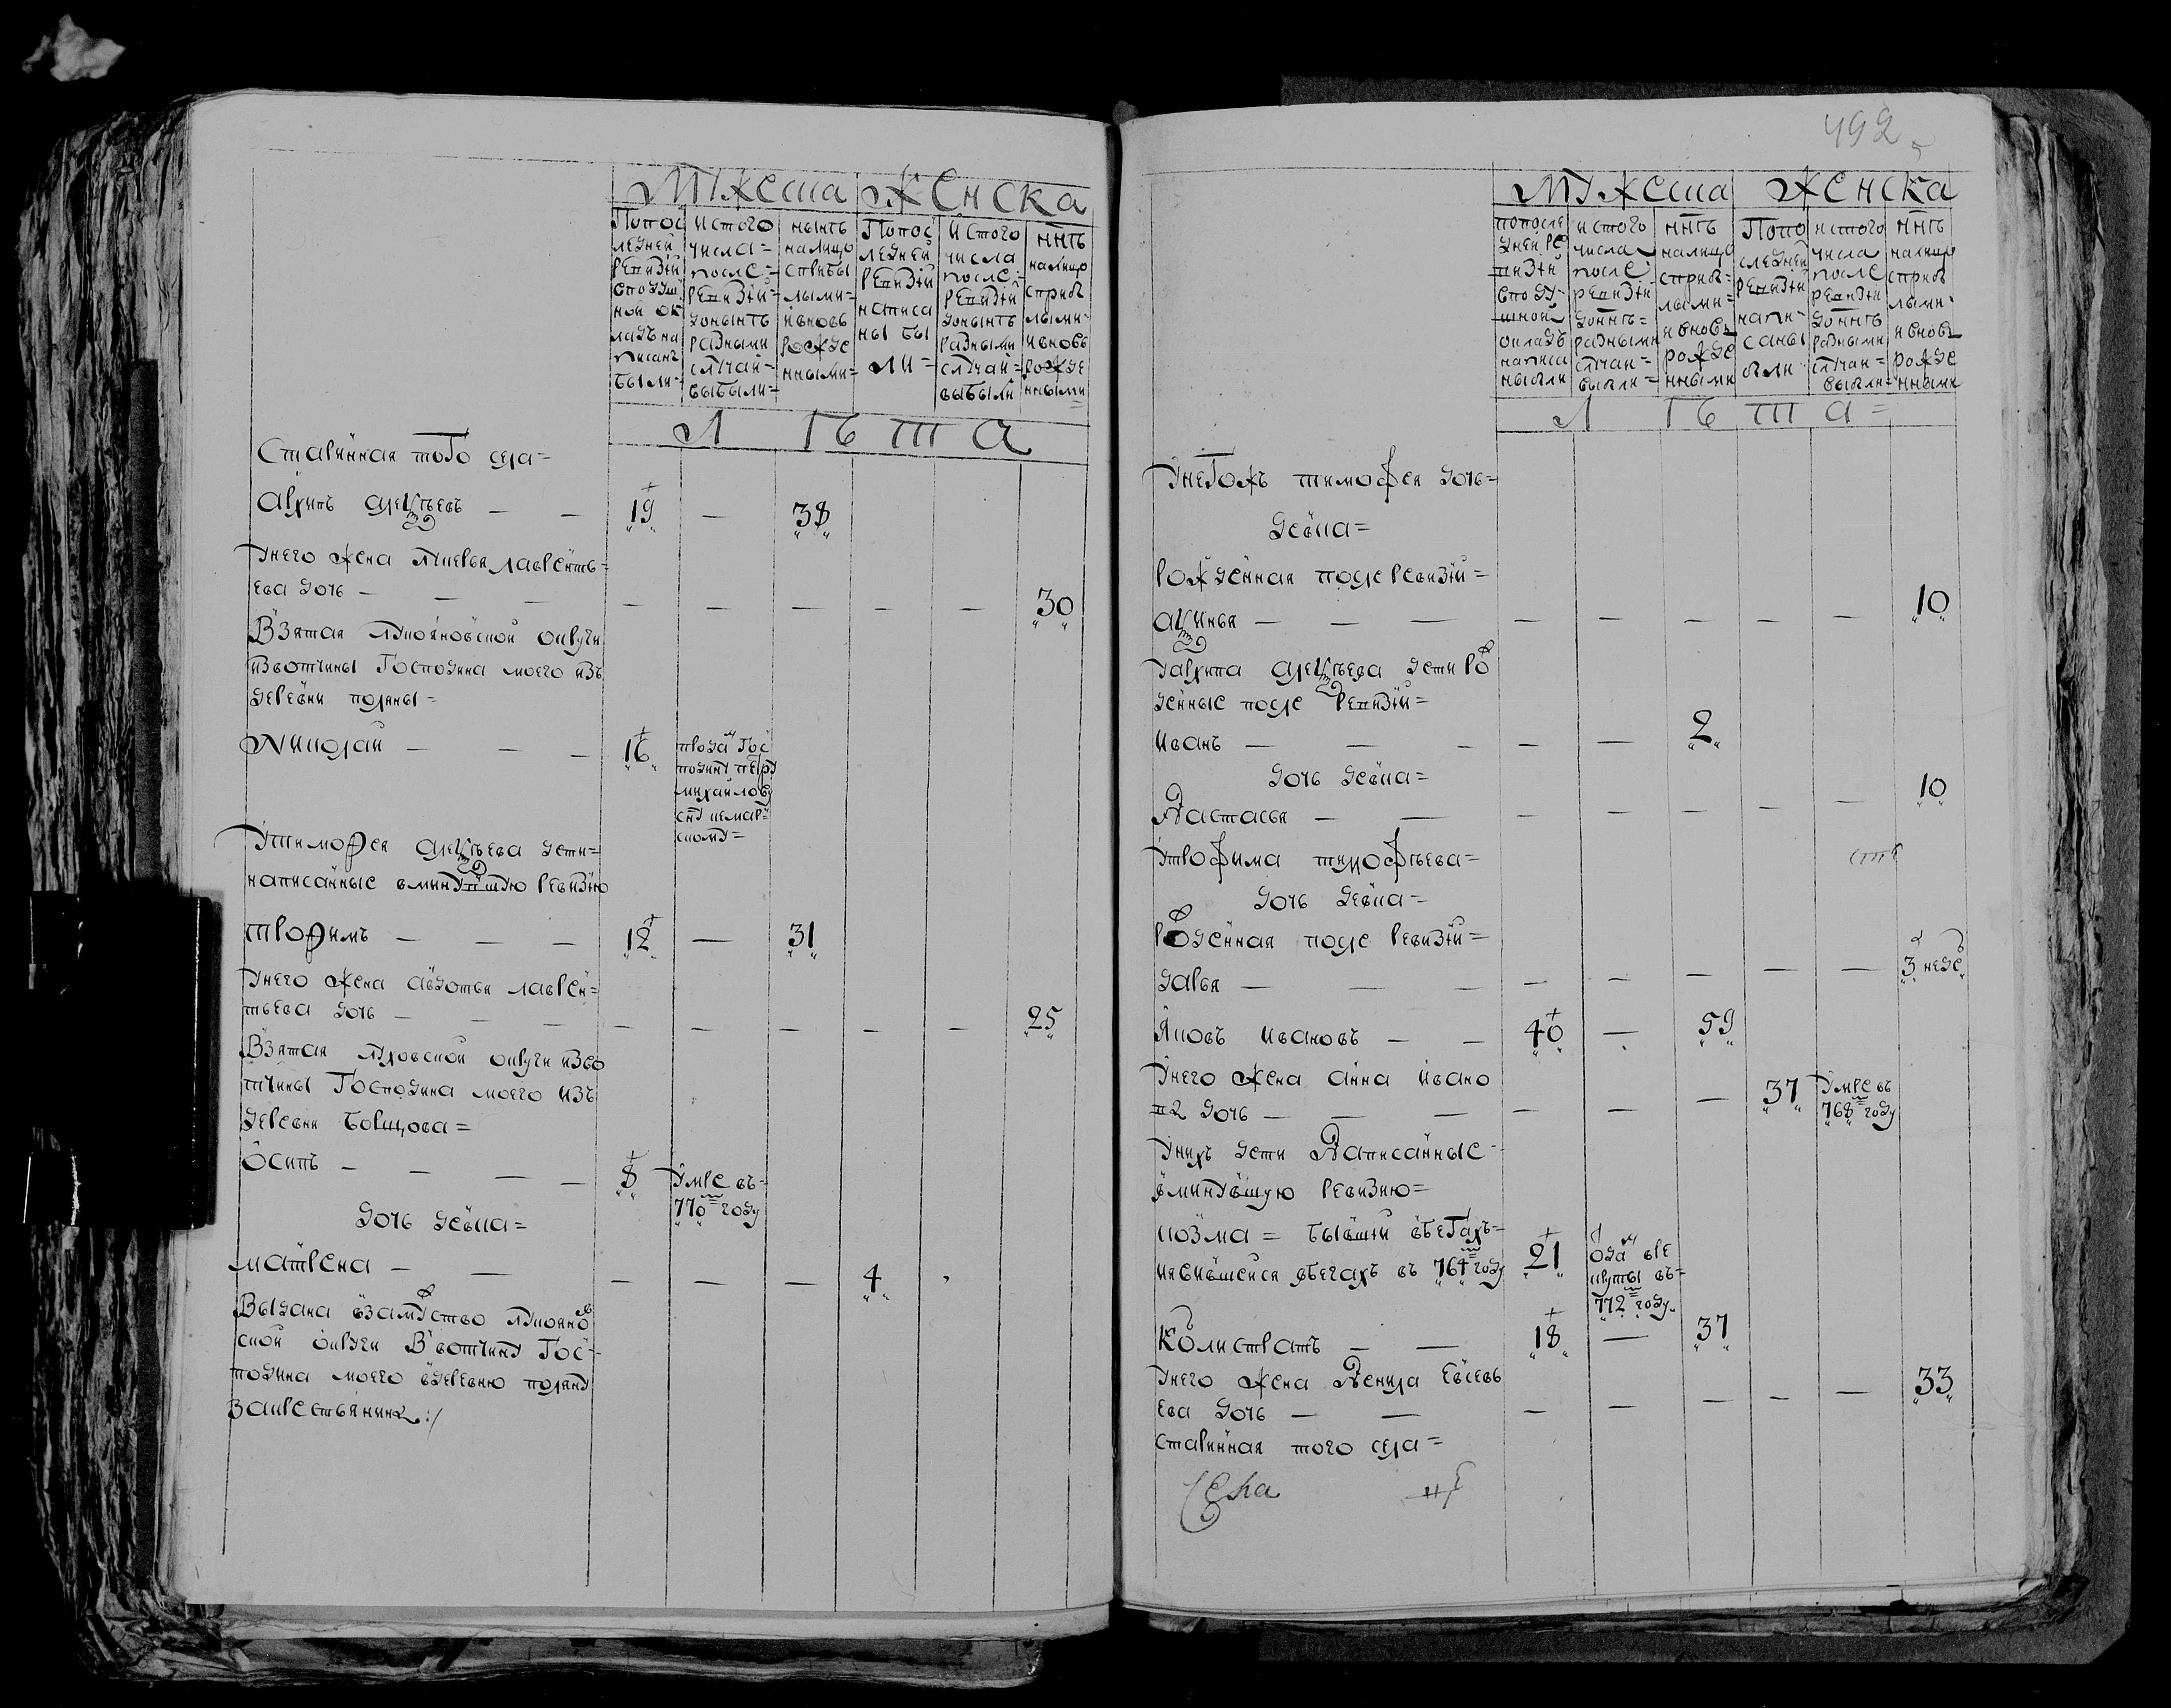 Мужеска Женска
Попос
ледней
ревизiи
споduш
ной ок
ладъ на
писанъ
были
ис того
числа
после
ревизiи
доныне
разными
случаи
выбыли
ныне
налицо
с прибы
лыми
и вновь
рожде
нными
Попос
ледней
ревизiи
написа
ны бы
ли
ис того
числа
после
ревизiи
доныне
разными
случаи
выбыли
нне
налицо
с приб
лыми
и вновь
рожде
нными
Л ѣ т а
Старинная того села
Архипъ Алексѣевъ — — 19 — 38
У него жена Лукерья Лаврентъ
ева дочь — — — — — — — — 30
Взятая Лукояновской округи
из вотчины Господина моего изъ
деревни поляны
Николай — — — 16
продан Гос
подину петру
михайлову
сну
У тимофея Алексѣева дети
написанные в минувшую ревизию
трофимъ — — — 12 — 31
У него жена авдотья лаврен
тьева дочь — — — — — — — — 25
Взятая округи из во
тчины Господина моего изъ
деревни
Осипъ — — — — 8 Умре въ
770м году
Дочь девка
матрена — — — — — 4
Выдана в замужство Лукоянов
ской округи в вотчину Гос
подина моего в деревню поляну
за крестьянина
492
Мужеска Женска
по после
дней ре
визiи
в поду
шной
окладъ
написа
ны были
ис того
числа
после
ревизiи
доннѣ
разными
случаи
выбыли
ннѣ
налицо
с приб
лыми
и вновь
рожде
нными
По по
следней
ревизiи
напи
саны
были
ис того
числа
после
ревизiи
доннѣ
разными
случаи
выбыли
ннѣ
налицо
с приб
лыми
и вновь
рожде
нными
Л ѣ т а
У негожъ тимофея дочь
девка
рожденная после ревизiи
аксинья — — — — — — — — 10
У архипа алексѣева дети рож
денные после ревизiи
иванъ — — — — — 2
дочь девка
Настасья — — — — — — — 10
У трофима тимофѣева
дочь девка
рожденная после ревизiи
дарья — — — — — — — — 3 неде
Яковъ ивановъ — — 40 — 59
У него жена анна ивано
ва дочь — — — — — — 37 Умре въ
768м году
У нихъ дети Написанные
в минувшую ревизию
козма бывшiй в бегахъ
явившейся в бегахъ въ 764м году 21
отдан в ре
круты въ
772м году
Калистратъ — — 18 — 37
У него жена Ненила Евсевь
ева дочь — — — — — — — 33
старинная того села